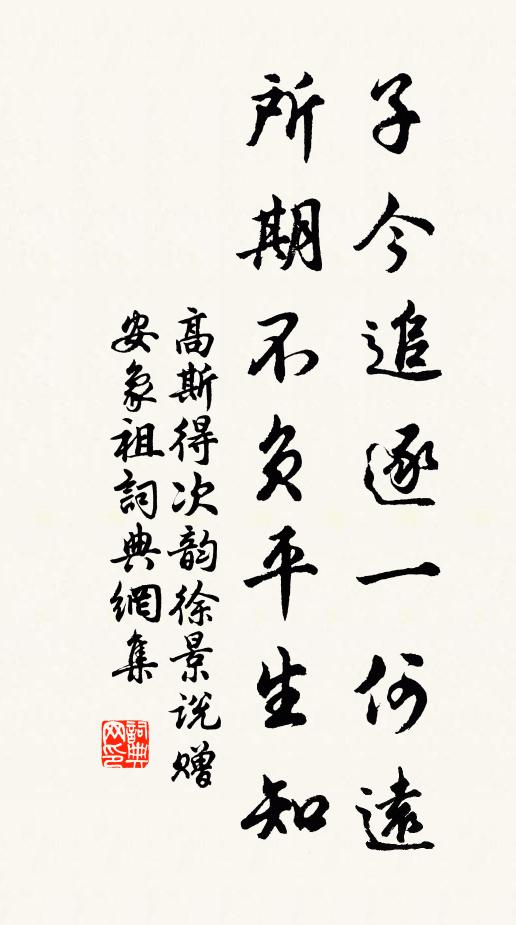 子今追逐一何遠
所期不負平生知
高斯得次韵徐景说赠
安象祖詞典網集
詞典
网印